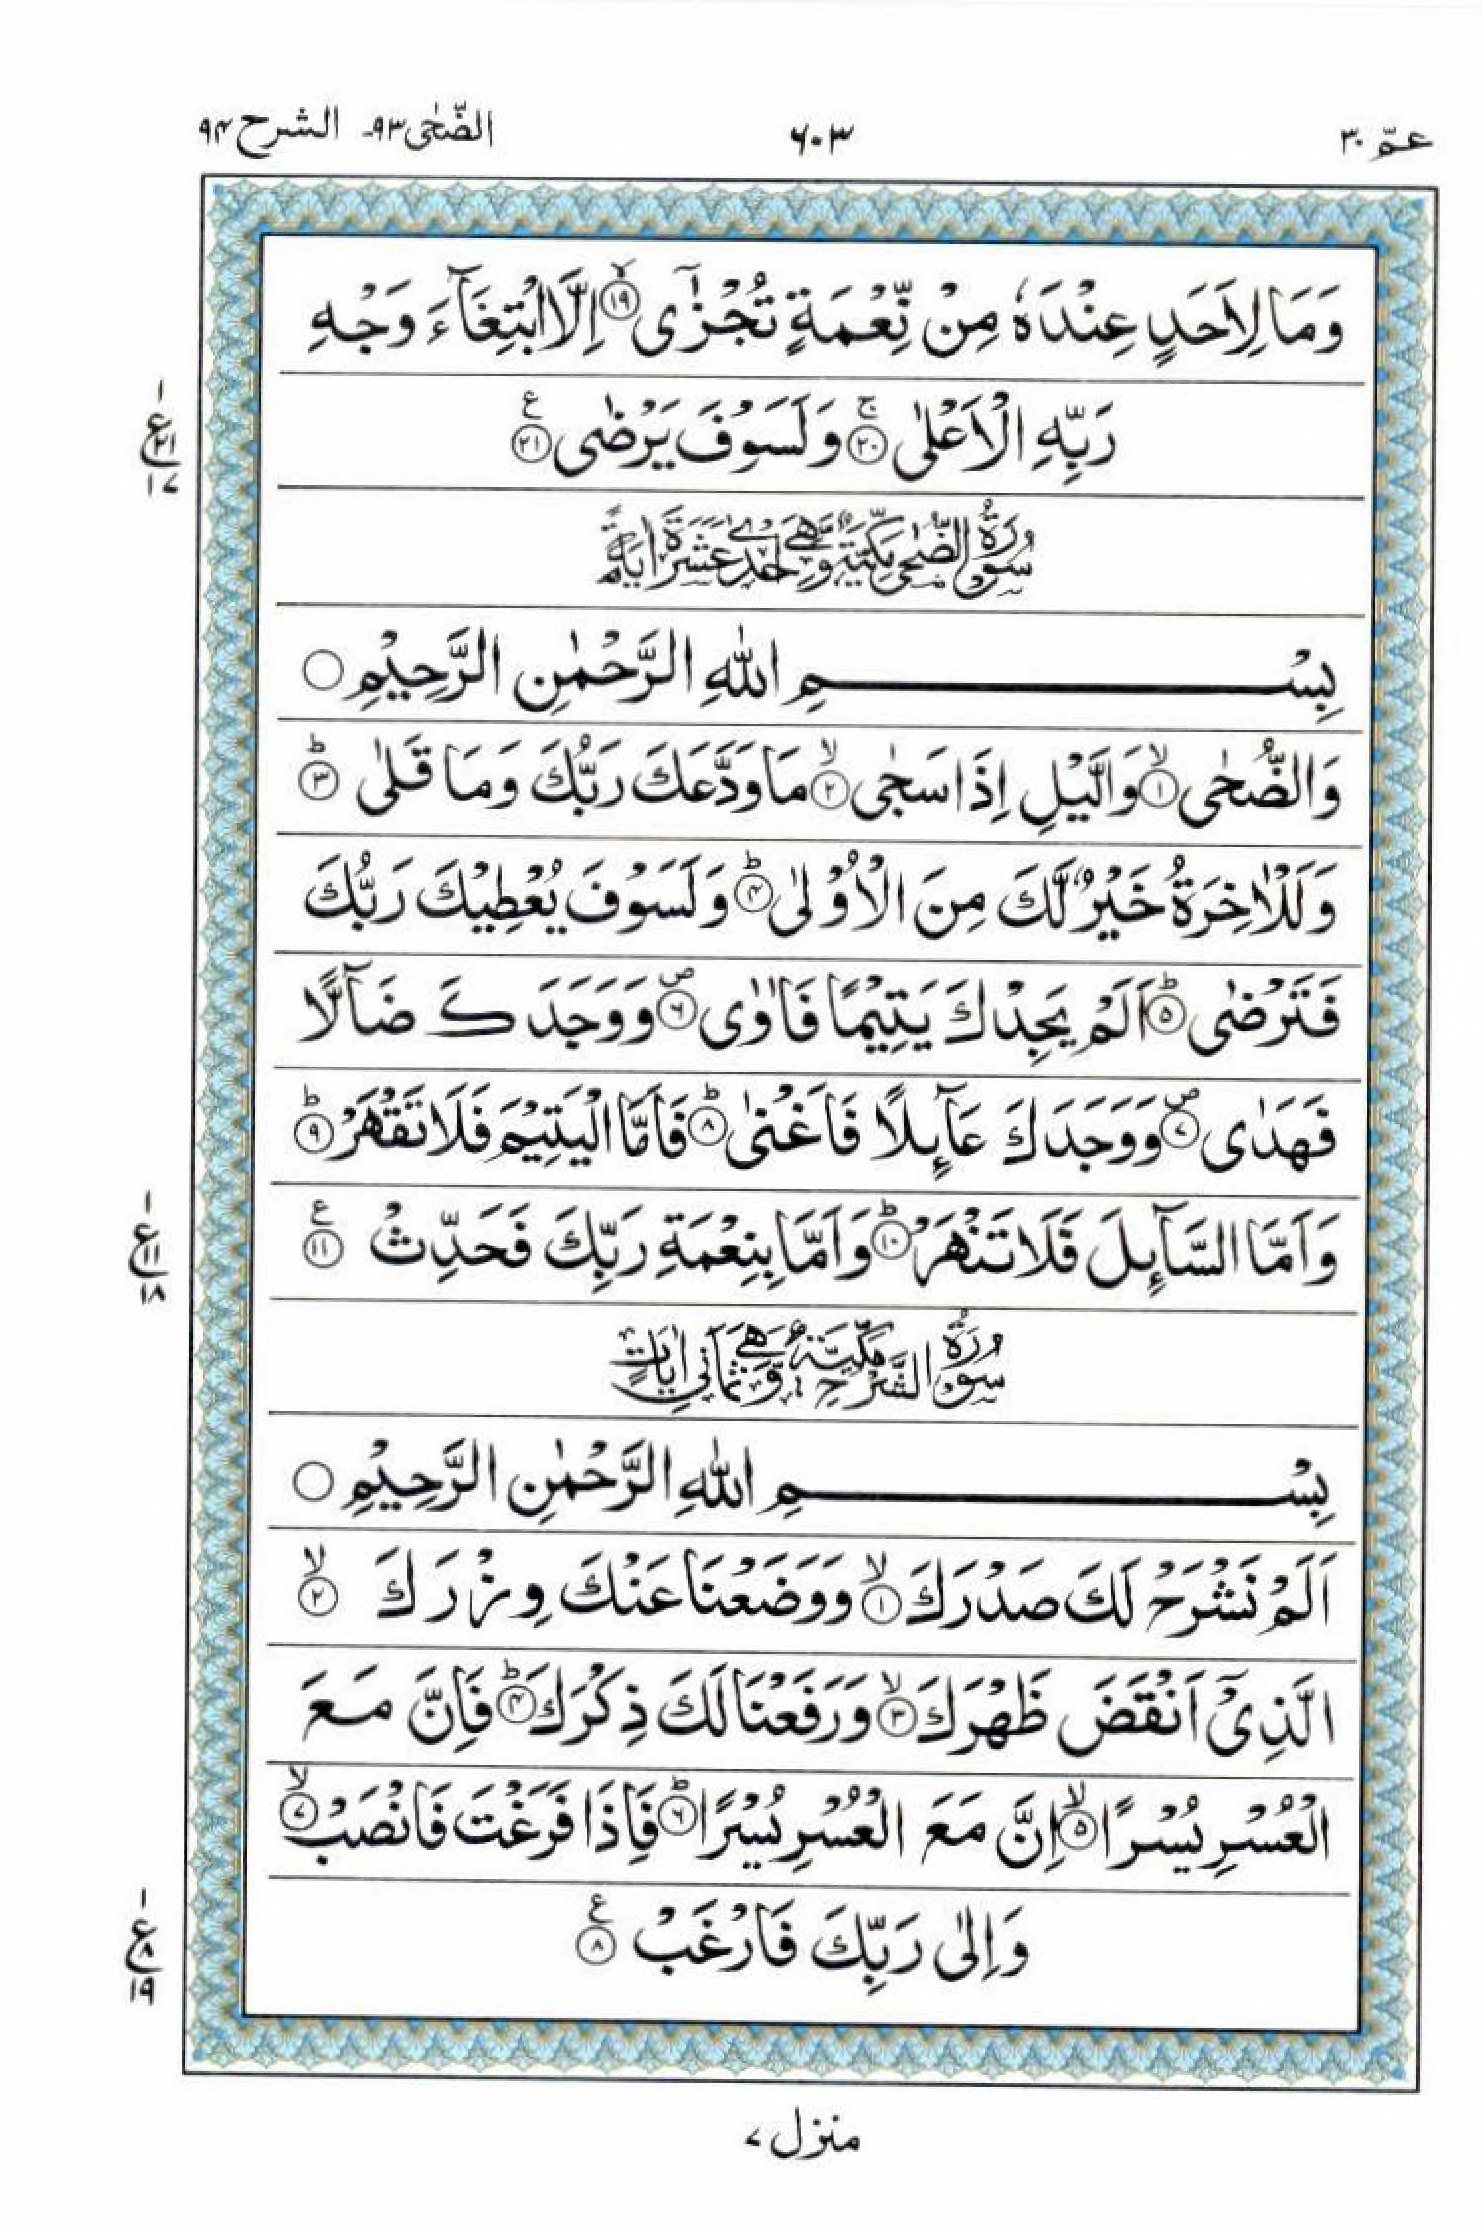 عمّ ٣٠
٦٠٣
الضّحٰى ٩٣۔ الشرح ٩٤
وَمَا لِاَحَدٍ عِنْدَهٗ مِنْ نِّعْمَةٍ تُجْزٰٓى ۙ‏﴿۱۹﴾ اِلَّا ابْتِغَآءَ وَجْهِ
رَبِّهِ الْاَعْلٰى ۚ‏﴿۲۰﴾ وَلَسَوْفَ يَرْضٰى ﴿۲۱﴾ ع
ا ع ٢١ ١٧
سُوْرَةُ الضُّحٰى مَكِّيَّةٌ وَّهِيَ اِحْدٰى عَشَرَةَ اٰيَةً
بِسْمِ اللّٰهِ الرَّحْمٰنِ الرَّحِيْمِ ○
وَالضُّحٰى ۙ‏﴿۱﴾ وَالَّيْلِ اِذَا سَجٰى ۙ‏﴿۲﴾ مَا وَدَّعَكَ رَبُّكَ وَمَا قَلٰى ؕ‏﴿۳﴾
وَلَلْاٰخِرَةُ خَيْرٌ لَّكَ مِنَ الْاُوْلٰى ؕ‏﴿۴﴾ وَلَسَوْفَ يُعْطِيْكَ رَبُّكَ
فَتَرْضٰى ؕ‏﴿۵﴾ اَلَمْ يَجِدْكَ يَتِيْمًا فَاٰوٰى ۖ‏﴿۶﴾ وَوَجَدَكَ ضَآلًّا
فَهَدٰى ۖ‏﴿۷﴾ وَوَجَدَكَ عَآئِلًا فَاَغْنٰى ؕ‏﴿۸﴾ فَاَمَّا الْيَتِيْمَ فَلَا تَقْهَرْ ؕ‏﴿۹﴾
وَاَمَّا السَّآئِلَ فَلَا تَنْهَرْ ؕ‏﴿۱۰﴾ وَاَمَّا بِنِعْمَةِ رَبِّكَ فَحَدِّثْ ﴿۱۱﴾ ع
ا ع ١١ ١٨
سُوْرَةُ الشَّرْحِ مَكِّيَّةٌ وَّهِيَ ثَمَانِيْ اٰيَاتٍ
بِسْمِ اللّٰهِ الرَّحْمٰنِ الرَّحِيْمِ ○
اَلَمْ نَشْرَحْ لَكَ صَدْرَكَ ۙ‏﴿۱﴾ وَوَضَعْنَا عَنْكَ وِزْرَكَ ۙ‏﴿۲﴾
الَّذِىْۤ اَنْقَضَ ظَهْرَكَ ۙ‏﴿۳﴾ وَرَفَعْنَا لَكَ ذِكْرَكَ ؕ‏﴿۴﴾ فَاِنَّ مَعَ
الْعُسْرِ يُسْرًا ۙ‏﴿۵﴾ اِنَّ مَعَ الْعُسْرِ يُسْرًا ؕ‏﴿۶﴾ فَاِذَا فَرَغْتَ فَانْصَبْ ۙ‏﴿۷﴾
وَاِلٰى رَبِّكَ فَارْغَبْ ﴿۸﴾ ع
ا ع ٨ ١٩
منزل ٧